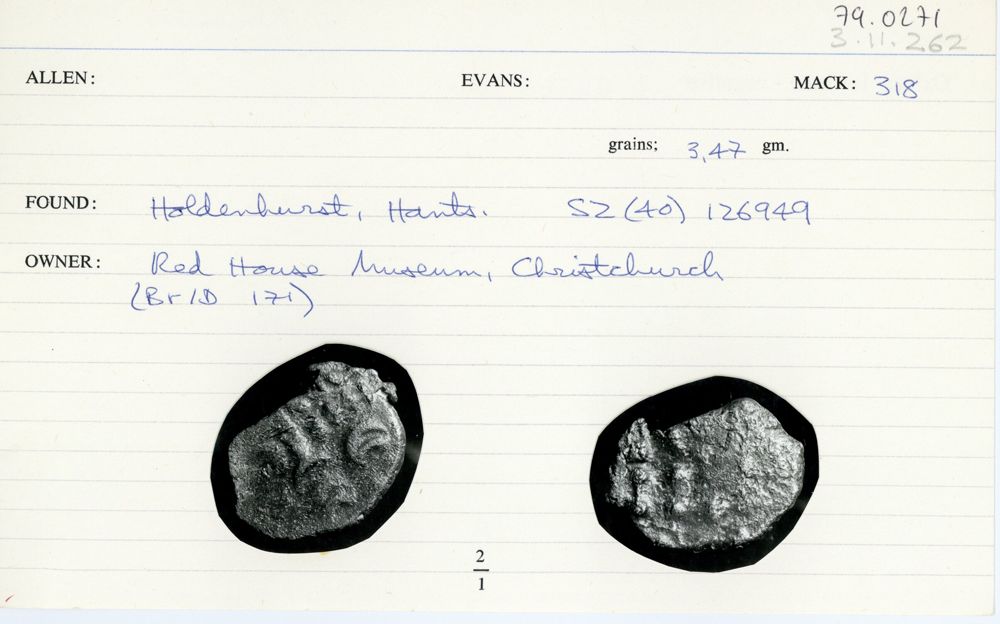 79.0271
3.11.262
ALLEN: EVANS: MACK: 318
grains; 3,47 gm.
FOUND: Holdenhurst, Hants. SZ (40) 126949
OWNER: Red House Museum, Christchurch
(Br/D 171)
2
1